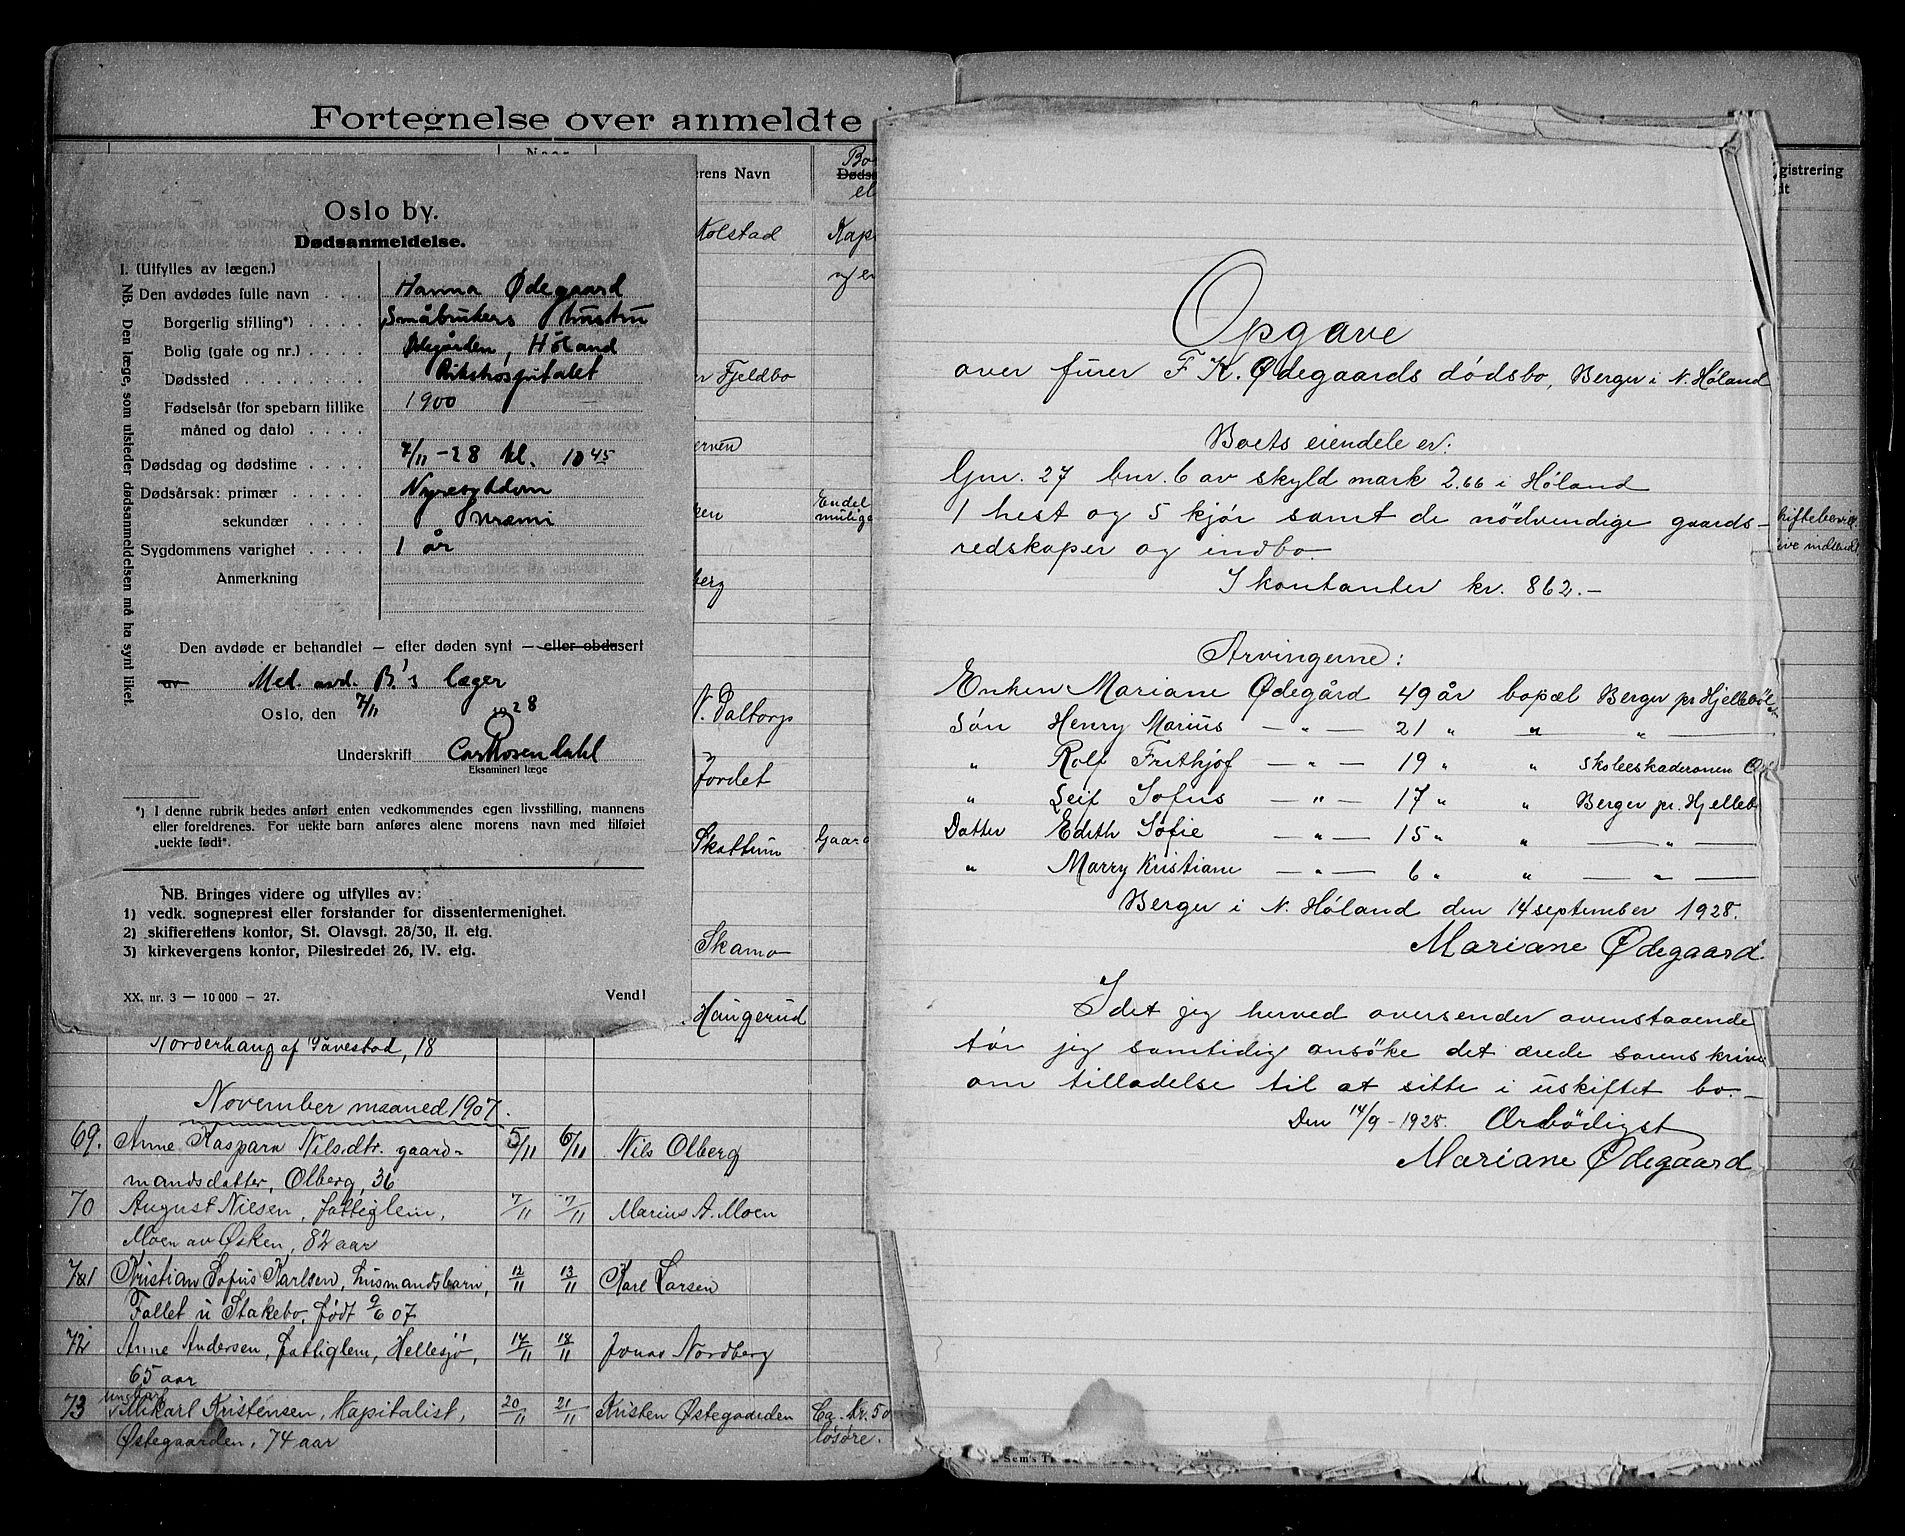 Fortegnelse over anmeldte
Oslo by.
Dødsanmeldelse.
I. (Utfylles av lægen.)
Den avdødes fulle navn . . . . Hanna Ødegaard
Borgerlig stilling*) . . . . Småbrukers hustru
Bolig (gate og nr.) . . . . Ødegården, Høland
Dødssted . . . . . . . . Rikshospitalet
Fødselsår (for spebarn tillike 1900
måned og dato) . . . .
Dødsdag og dødstime . . . . 7/11 -28 kl. 10 45
Dødsårsak: primær . . . . Nyresykdom
sekundær . . . . Uræmi
Sygdommens varighet . . . . 1 år
Anmerkning
NB. Den læge, som utsteder dødsanmeldelsen må ha synt liket.
Den avdøde er behandlet — efter døden synt — eller obdusert
av Med. avd. B.'s læger
Oslo, den 7/11 1928
Underskrift Carl Rosendahl
Eksaminert læge
*) I denne rubrik bedes anført enten vedkommendes egen livsstilling, mannens
eller foreldrenes. For uekte barn anføres alene morens navn med tilføiet
„uekte født".
NB. Bringes videre og utfylles av:
1) vedk. sogneprest eller forstander for dissentermenighet.
2) skifterettens kontor, St. Olavsgt. 28/30, II. etg.
3) kirkevergens kontor, Pilestredet 26, IV. etg.
XX. nr. 3 — 10 000 — 27. Vend!
erens Navn
Kolstad Kap
er Fjeldbo
erven
ken Endel
mulig
berg
N. Daltorp
Jordet
Skattum Gaard
Skamo
Haugerud
Norderhaug af Tævestad, 18
November maaned 1907.
69. Anne Kaspara Nilsdtr. gaard- 5/11 6/11 Nils Olberg
mandsdatter, Olberg, 36
70 August Nilsen, fattiglem, 7/11 7/11 Marius A. Moen
Moen av Øsken, 82 aar
71 Kristian Sofus Karlsen, husmandsbarn, 12/11 13/11 Karl Larsen
Fallet u Stakebo, født 9/6 07
72 Anne Andersen, fattiglem, Hellesjø, 14/11 18/11 Jonas Nordberg
65 aar
73 ungkarl Mikarl Kristensen, Kapitalist, 20/11 21/11 Kristen Østegaarden Ca. kr. 50
Østegaarden, 74 aar løsøre.
Opgave
over furer F K. Ødegaards dödsbo, Berger i N. Høland
Boets eiendele er:
Gnr. 27 bnr. 6 av skyld mark 2.66 i Høland
1 hest og 5 kjør samt de nödvendige gaards-
redskaper og indbo.
I kontanter kr. 862.-
Arvingerne:
Enken Mariane Ødegård 49 år bopæl Berger pr Hjellebøl
Søn Henry Marius — „ — 21 „ „ — „ —
„ Rolf Frithjof — „ — 19 „ „ Skoleeskadronen
„ Leif Sofus — „ — 17 „ „ Berger pr. Hjelleb
Datter Edith Sofie — „ — 15 „ „ — „ —
„ Marry Kristiane — „ — 6 „ „ — „ —
Berger i N. Høland den 14 september 1928.
Mariane Ødegaard
Idet jeg herved oversender ovenstaaende
tør jeg samtidig ansöke det ærede sorenskriver
om tilladelse til at sitte i uskiftet bo.—
Den 14/9 - 1928. Ærbödigst
Mariane Ødegaard
gistrering
kiftebevill.
ive indsendt
Sem's T